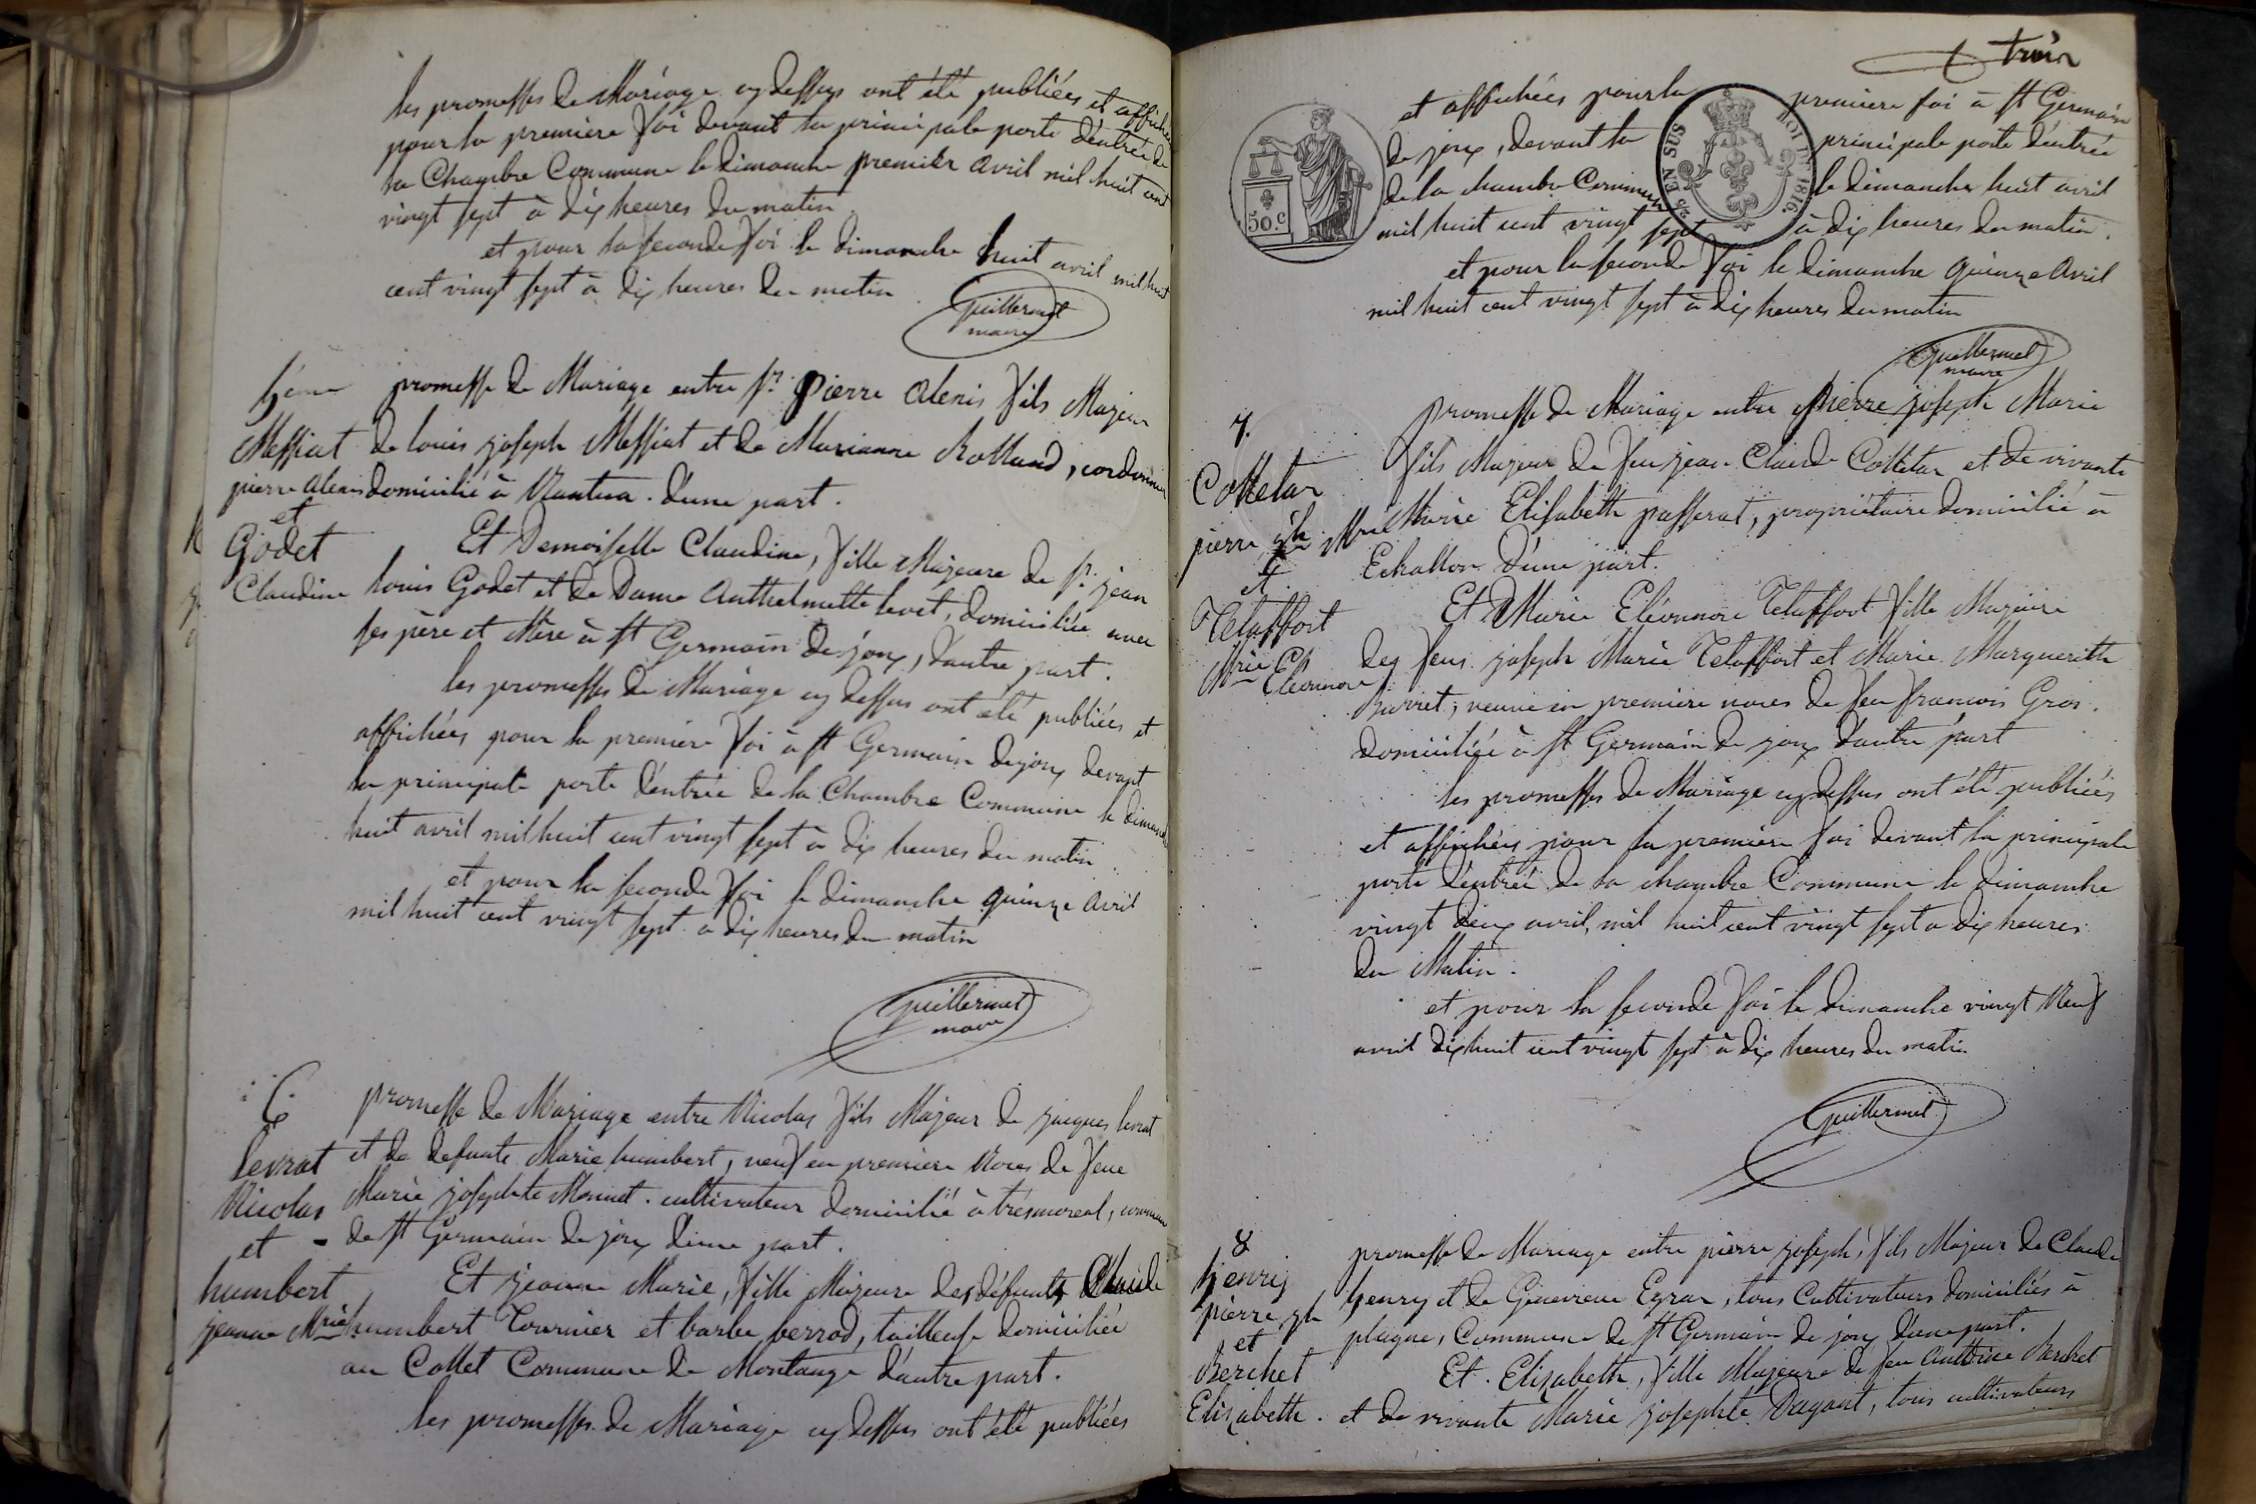 les promesses de Mariage cy dessus ont été publiées et affichées
pour la premiere foi devant la principale porte d'entrée de
la Chambre Commune le dimanche premier avril mil huit cent
vingt sept à dix heures du matin
et pour la seconde foi le dimanche huit avril mil huit
cent vingt sept à dix heures du matin
Guillermet
maire
5eme
Messiat
pierre alexis
et
Godet
Claudine
promesse de Mariage entre Sr. Pierre alexis fils Majeur
de louis joseph Messiat et de Marianne Rolland, cordonnier
domicilié à Nantua. d'une part.
Et Demoiselle Claudine, fille Majeure de Sr. jean
louis Godet et de Dame Anthelmette levet, domiciliée avec
ses père et Mère à St Germain de joux, d'autre part.
les promesses de Mariage cy dessus ont été publiées et
affichées pour la premiere foi à St Germain de joux devant
la principale porte d'entrée de la Chambre Commune le dimanche
huit avril mil huit cent vingt sept à dix heures du matin
et pour la seconde foi le dimanche quinze avril
mil huit cent vingt sept à dix heures du matin
Guillermet
maire
6
levrat
Nicolas
et
humbert
jeanne Mrie
promesse de Mariage entre Nicolas fils Majeur de jacques levrat
et de defunte Marie humbert, veuf en premiere Noces de feue
Marie josephte Monnet. cultivateur domicilié à trésmoreal, commune
de St Germain de joux d'une part.
Et jeanne Marie, fille Majeure des défunts Claude
humbert Tournier et barbe perrod, tailleuse domiciliée
au Collet Commune de Montange d'autre part.
les promesses de Mariage cy dessus ont été publiées
trois
50 c
2/5 EN SUS
LOI DE 1816.
et affichées pour la premiere foi à St Germain
de joux, devant la principale porte d'entrée
de la chambre Commune le dimanche huit avril
mil huit cent vingt sept à dix heures du matin.
et pour la seconde foi le dimanche quinze avril
mil huit cent vingt sept à dix heures du matin
Guillermet
maire
7.
Collelar
pierre jh Mrie
et
Telaffort
Mrie Eléonnore
promesse de Mariage entre Pierre joseph Marie
fils Majeur de feu jean Claude Colletar et de vivante
Marie Elisabeth passerat, propriétaire domicilié à
Echallon d'une part.
Et Marie Eléonnore Telaffort fille Majeure
des feus joseph Marie Telaffort et Marie Marguerithe
Burret, veuve en premiere noces de feu francois Gros.
domiciliée à St Germain de joux d'autre part
les promesses de Mariage cy dessus ont été publiées
et affichées pour la premiere foi devant la principale
porte d'entrée de la chambre Commune le dimanche
vingt deux avril, mil huit cent vingt sept à dix heures
du Matin.
et pour la seconde foi le dimanche vingt Neuf
avril dix huit cent vingt sept à dix heures du matin
Guillermet
8
henry
pierre jh
et
Berchet
Elizabeth.
promesse de Mariage entre pierre joseph, fils Majeur de Claude
henry et de Genevieve Egraz, tous Cultivateurs domiciliés à
plagne, Commune de St Germain de joux d'une part.
Et Elizabeth, fille Majeure de feu Anthoine Berchet
et de vivante Marie josephte Dagant, tous cultivateurs